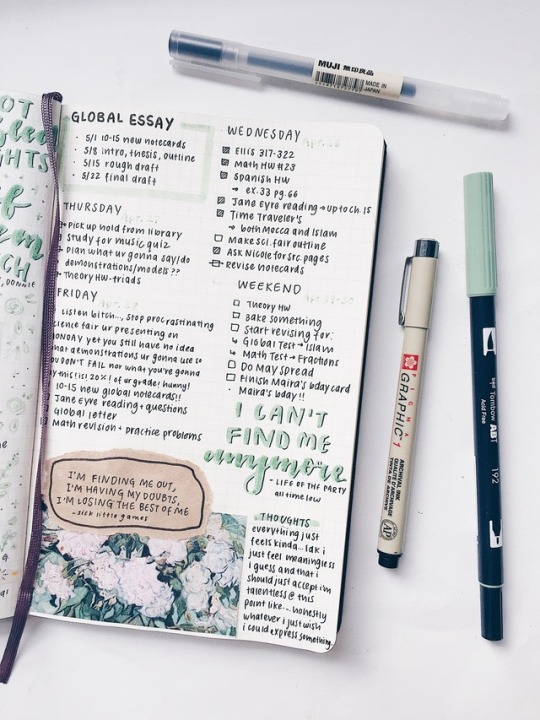 GLOBAL ESSAY
· 5/1 10-15 new notecards
· 5/8 intro, thesis, outline
· 5/15 rough draft
· 5/22 final draft
THURSDAY
Pick up hold from library
study for music quiz
plan what ur gonna say/do
demonstrations/models ??
Theory HW-triads
FRIDAY
Listen bitch... stop procrastinating
science fair ur presenting on
MONDAY yet you still have no idea
what demonstrations ur gonna use so
YOU DON'T FAIL nor what you're gonna
say this is! 20% ! of ur grade! hunny!
10-15 new global notecards!!
Jane Eyre reading + questions
Global letter
Math revision + practice problems
I'M FINDING ME OUT,
I'M HAVING MY DOUBTS,
I'M LOSING THE BEST OF ME
- sick little games
WEDNESDAY
Ellis 317-322
Math HW #23
Spanish HW
→ ex. 33 pg. 66
Jane Eyre reading → up to ch. 15
Time Traveler's
→ both Mecca and Islam
Make sci. fair outline
Ask Nicole for src. pages
Revise notecards
WEEKEND
Theory HW
Bake something
Start revising for:
↳ Global Test → Islam
↳ Math Test → Fractions
Do May spread
Finish Maira's bday card
Maira's bday !!
I CAN'T
FIND ME
anymore
- LIFE OF THE PARTY
all time low
THOUGHTS
everything just
feels kinda... idk i
just feel meaningless
i guess and that i
should just accept im
talentless @ this
point like... honestly
whatever i just wish
i could express something
MUJI 無印良品
MADE IN
JAPAN
PIGMA
GRAPHIC 1
ARCHIVAL INK
QUALITE D'ARCHIVES
AP
Tombow ABT
Acid Free
192